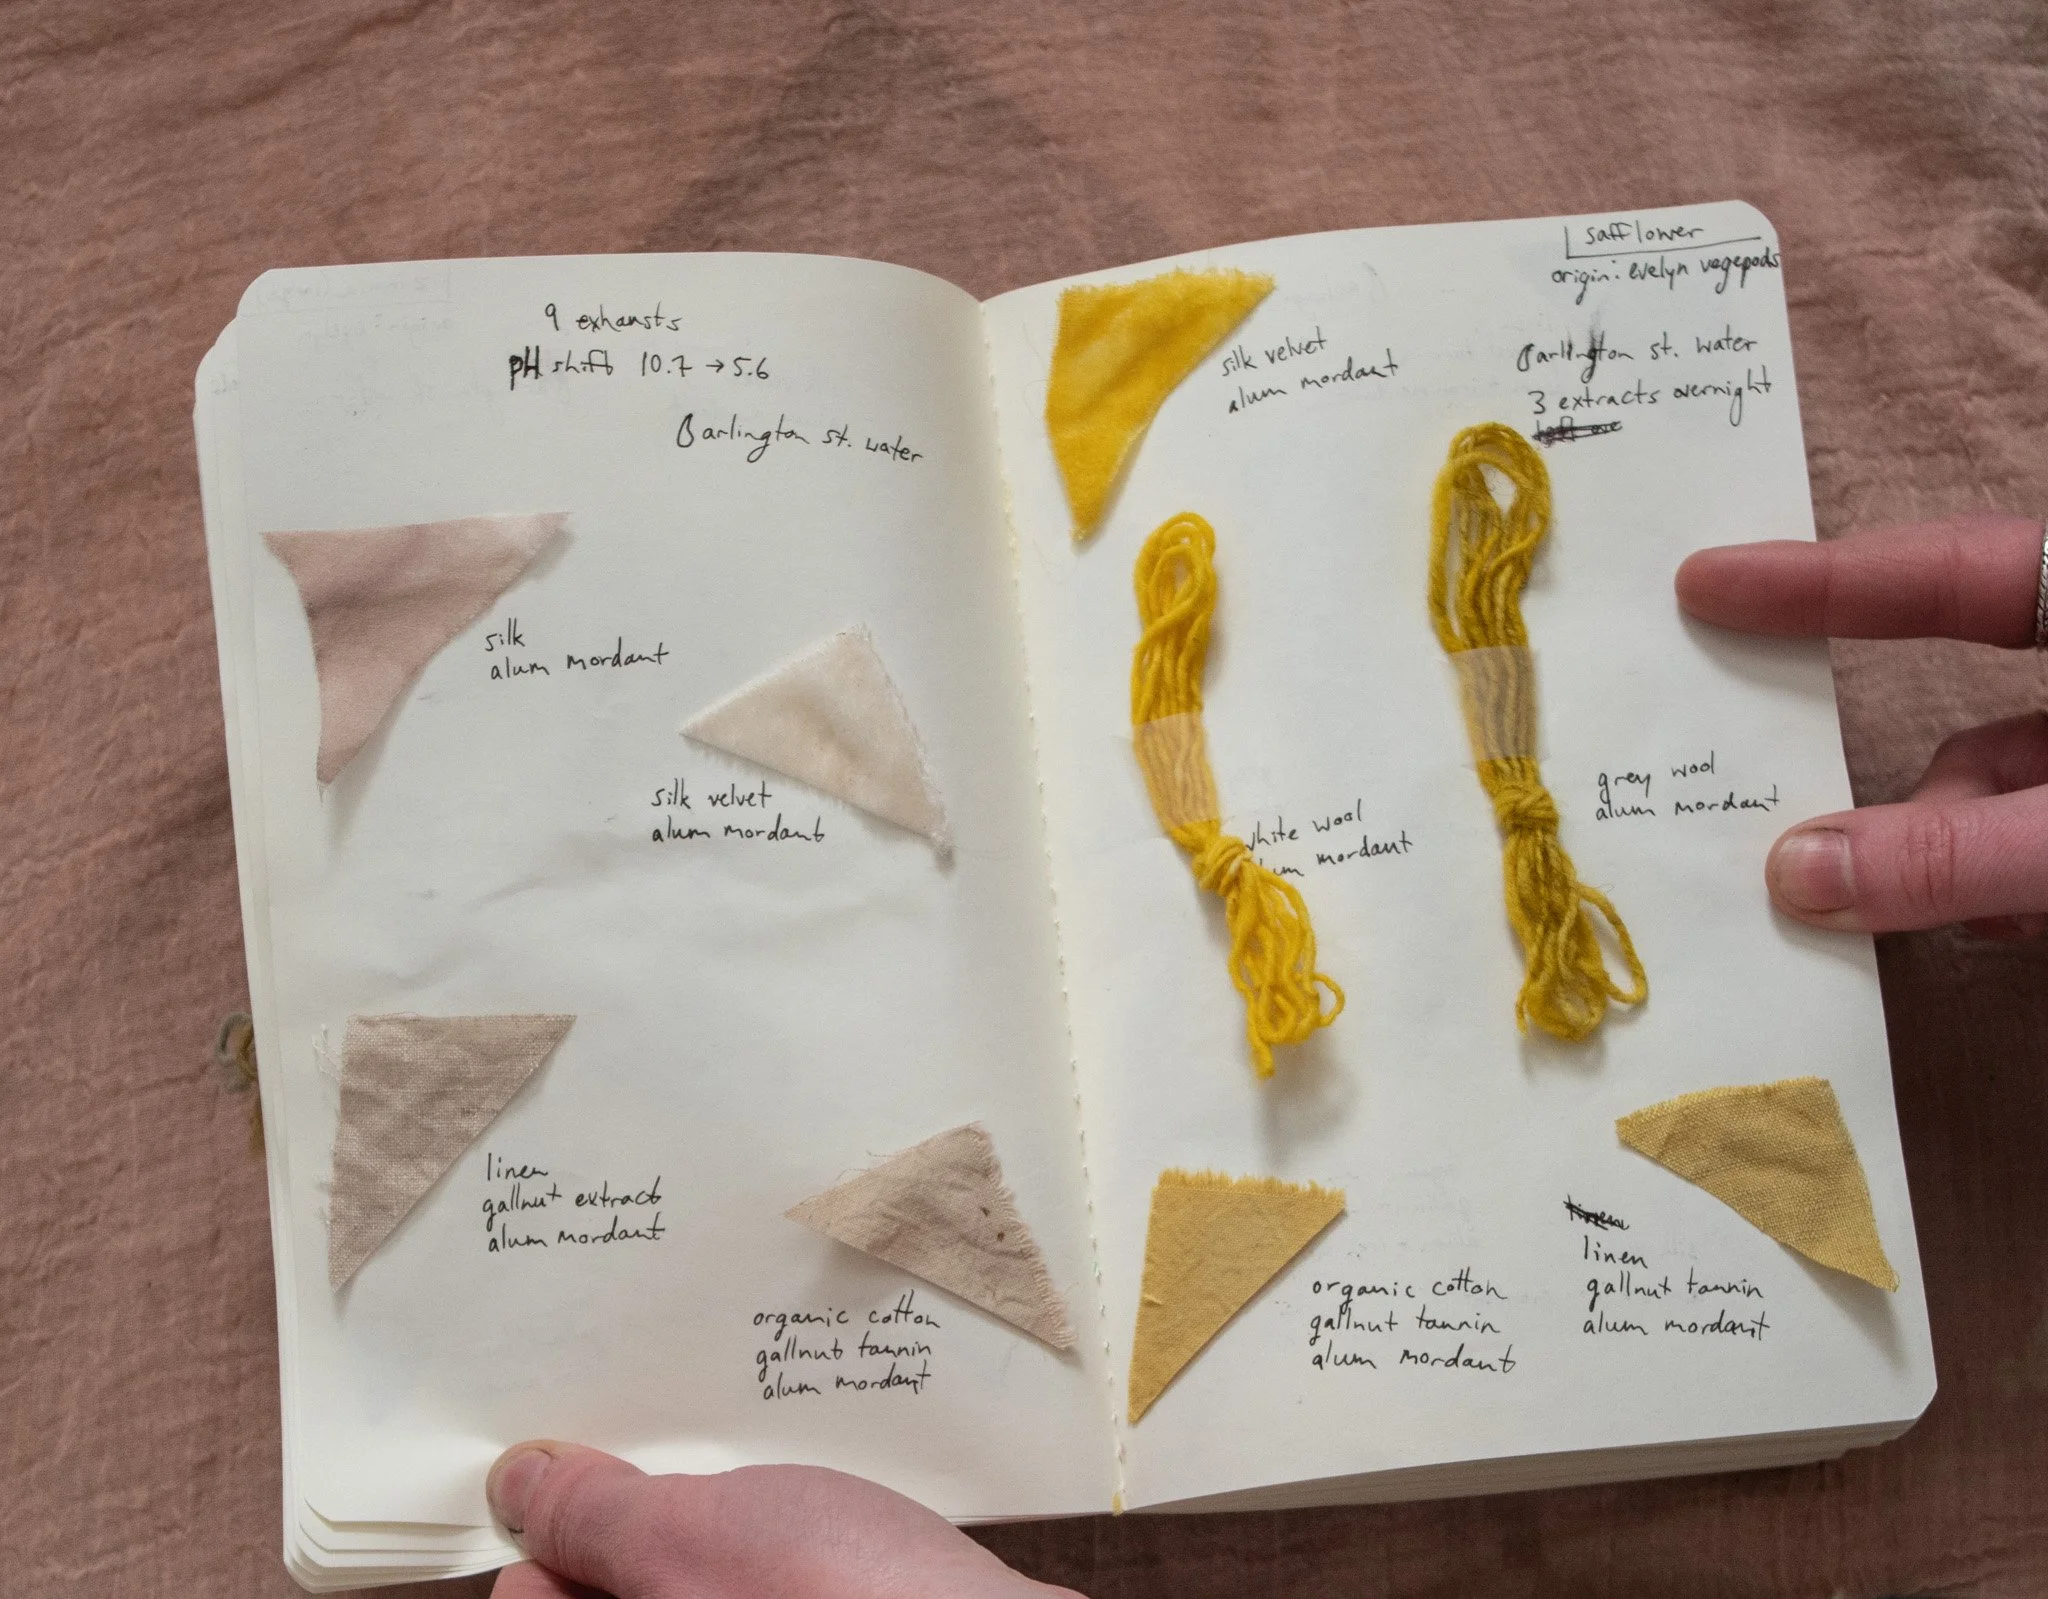 9 exhausts
pH shift 10.7 → 5.6
Barlington st. water
silk
alum mordant
silk velvet
alum mordant
linen
gallnut extract
alum mordant
organic cotton
gallnut tannin
alum mordant
safflower
origin: evelyn vegepods
silk velvet
alum mordant
Barlington st. water
3 extracts overnight
white wool
mordant
grey wool
alum mordant
organic cotton
gallnut tannin
alum mordant
linen
linen
gallnut tannin
alum mordant